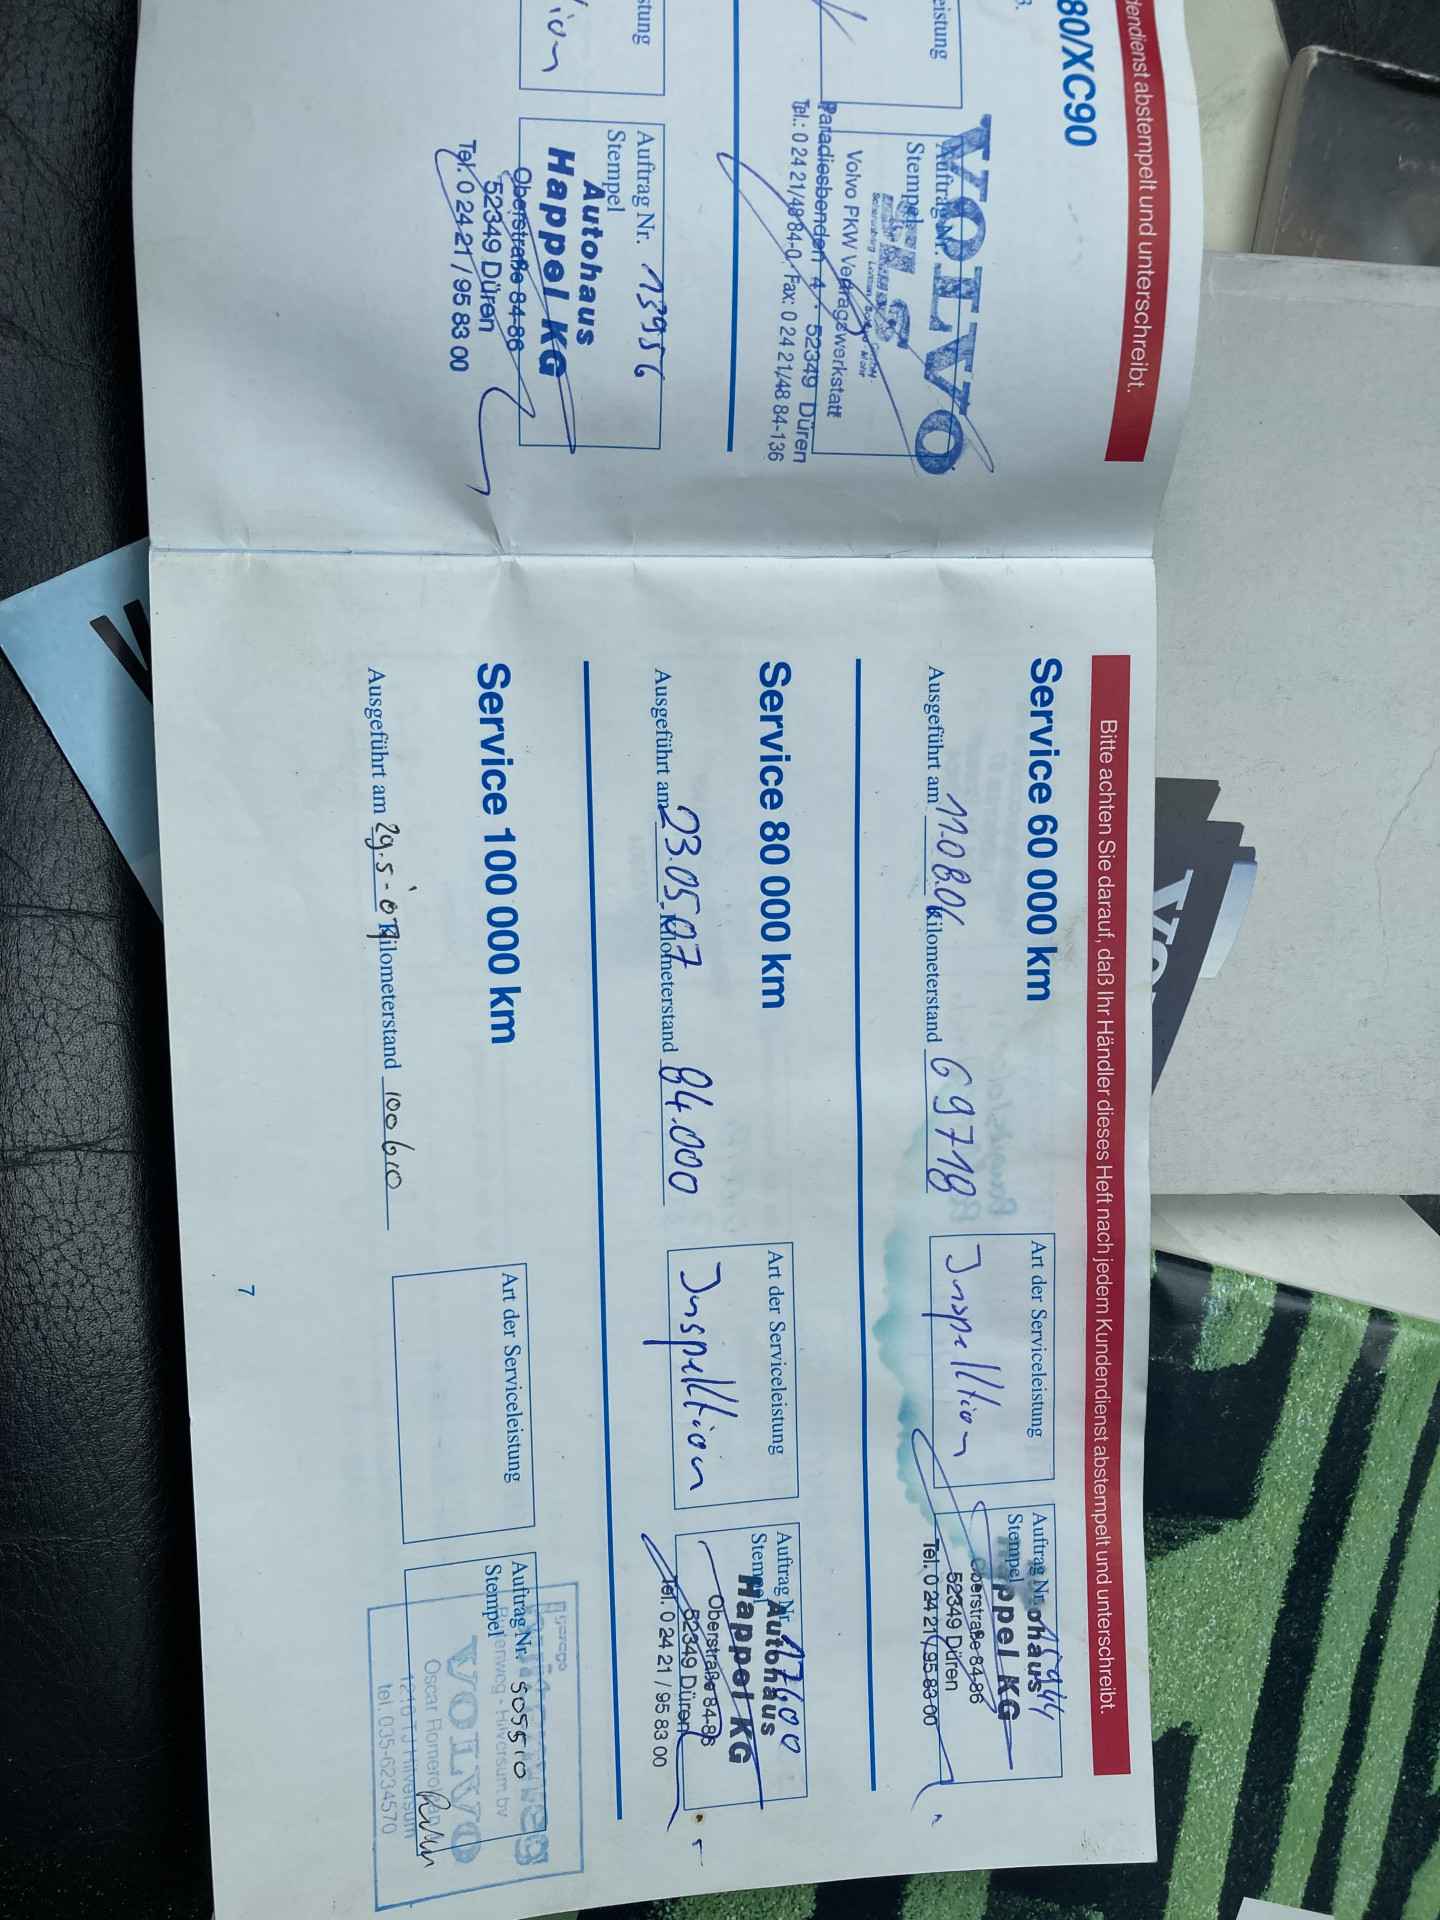 80/XC90
dendienst abstempelt und unterschreibt.
eistung
Auftrag Nr.
Stempel
VOLVO
Volvo PKW Vertragswerkstatt
Paradiesbenden 4 · 52349 Düren
Tel.: 0 24 21/48 84-0, Fax: 0 24 21/48 84-136
stung
ion
Auftrag Nr. 13956
Stempel
Autohaus
Happel KG
Oberstraße 84-86
52349 Düren
Tel. 0 24 21 / 95 83 00
Bitte achten Sie darauf, daß Ihr Händler dieses Heft nach jedem Kundendienst abstempelt und unterschreibt.
Service 60 000 km
Ausgeführt am 11.08.06 Kilometerstand 69718
Art der Serviceleistung
Inspektion
Auftrag Nr. 15944
Stempel
ohaus
ppel KG
Oberstraße 84-86
52349 Düren
Tel. 0 24 21 / 95 83 00
Service 80 000 km
Ausgeführt am 23.05.07 Kilometerstand 84.000
Art der Serviceleistung
Inspektion
Auftrag Nr. 17600
Stempel
Autohaus
Happel KG
Oberstraße 84-86
52349 Düren
Tel. 0 24 21 / 95 83 00
Service 100 000 km
Ausgeführt am 29.5-'09 Kilometerstand 100610
Art der Serviceleistung
Auftrag Nr. 505510
Stempel
garage
Hilversum bv
VOLVO
Oscar Romerolaan
1216 TJ Hilversum
tel. 035-6234570
7